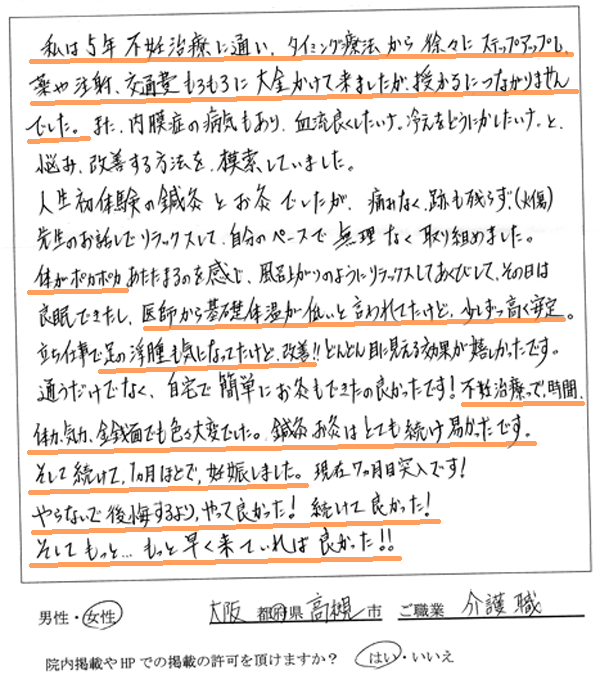 私は5年不妊治療に通い、タイミング療法から徐々にステップアップし、
薬や注射、交通費もろもろに大金かけて来ましたが、授かるにつながりません
でした。また、内膜症の病気もあり、血流良くしたいナ。冷えをどうにかしたいナ。と、
悩み、改善する方法を、模索していました。
人生初体験の鍼灸とお灸でしたが、痛みなく、跡も残らず、(火傷)
先生のお話しでリラックスして、自分のペースで無理なく取り組めました。
体がポカポカあたたまるのを感じ、風呂上がりのようにリラックスしてあくびして、その日は
良眠できたし、医師から基礎体温が低いと言われてたけど、少しずつ高く安定。
立ち仕事で足の浮腫も気になってたけど、改善!!どんどん目に見える効果が嬉しかったです。
通うだけでなく、自宅で簡単にお灸もできたの良かったです!不妊治療って、時間、
体力、気力、金銭面でも色々大変でした。鍼灸お灸はとても続け易かったです。
そして続けて、1ヵ月ほどで、妊娠しました。現在7ヵ月目突入です!
やらないで後悔するより、やって良かった!続けて良かった!
そしてもっと…もっと早く来ていれば良かった!!
男性・女性 大阪 都府県 高槻 市 ご職業 介護職
院内掲載やHPでの掲載の許可を頂けますか? はい・いいえ